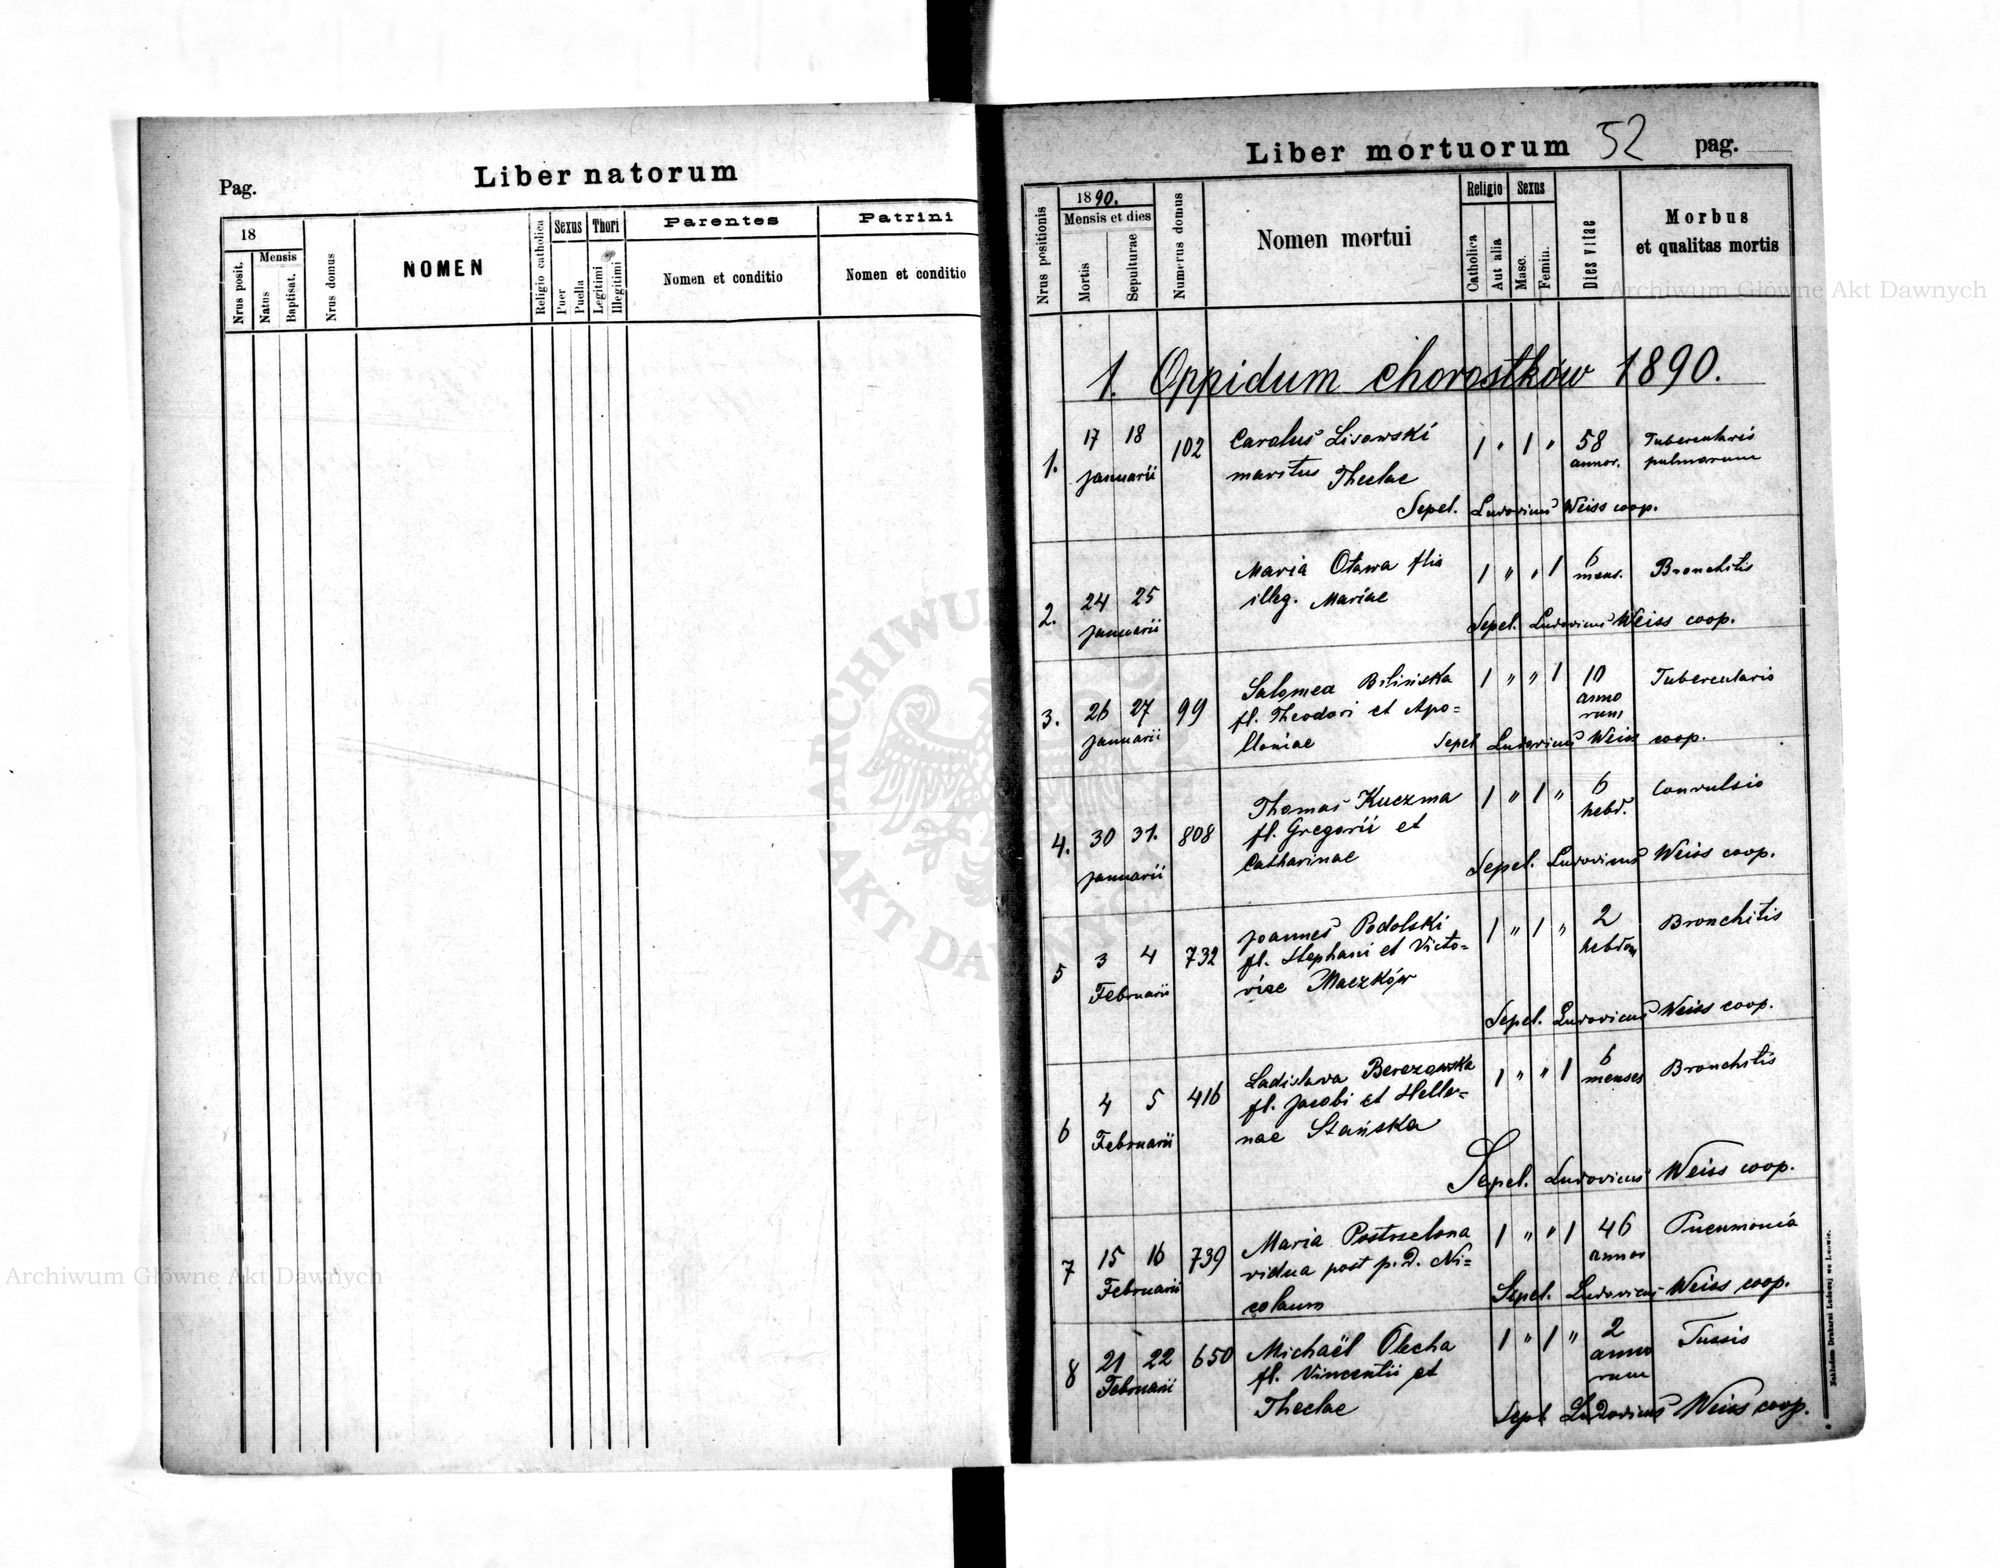 Pag.
Liber natorum
18
Nrus posit.
Mensis
Natus
Baptisat.
Nrus domus
NOMEN
Religio catholica
Sexus
Puer
Puella
Thori
Legitimi
Illegitimi
Parentes
Nomen et conditio
Patrini
Nomen et conditio
Liber mortuorum 52 pag.
Nrus positionis
1890.
Mensis et dies
Mortis
Sepulturae
Numerus domus
Nomen mortui
Religio
Catholica
Aut alia
Sexus
Masc.
Femin.
Dies vitae
Morbus
et qualitas mortis
1. Oppidum Chorostków 1890.
1. 17 18 102 Carolus Lisowski 1 " 1 " 58 Tubercularis
Januarii maritus Theclae annor. pulmorum
Sepel. Ludovicus Weiss coop.
Maria Otawa filia 1 " " 1 6 Bronchitis
2. 24 25 illeg. Mariae mens.
Januarii Sepel. Ludovicus Weiss coop.
Salomea Bilińska 1 " " 1 10 Tubercularis
3. 26 27 99 fl. Theodori et Apo= anno
Januarii lloniae rum
Sepel Ludovicus Weiss coop.
Thomas Kuczma 1 " 1 " 6 Convulsio
4. 30 31. 808 fl. Gregorii et hebd.
Januarii Catharinae Sepel. Ludovicus Weiss coop.
Joannes Podolski 1 " 1 " 2 Bronchitis
5 3 4 732 fl. Stephani et Victo= hebdom
Februarii riae Maczków
Sepel. Ludovicus Weiss coop.
Ladislava Berezowska 1 " " 1 6 Bronchitis
4 5 416 fl. Jacobi et Helle= menses
6 Februarii nae Stańska
Sepel. Ludovicus Weiss coop.
Maria Postrzelona 1 " " 1 46 Pneumonia
7 15 16 739 vidua post p. D. Ni= annor
Februarii colaum Sepel. Ludovicus Weiss coop.
8 21 22 650 Michaël Olecha 1 " 1 " 2 Tussis
Februarii fl. Vincentii et anno
Theclae rum
Sepel Ludovicus Weiss coop.
Nakładem Drukarni Ludowej we Lwowie.
Archiwum Główne Akt Dawnych
Archiwum Główne Akt Dawnych
ARCHIWUM GŁÓWNE
AKT DAWNYCH